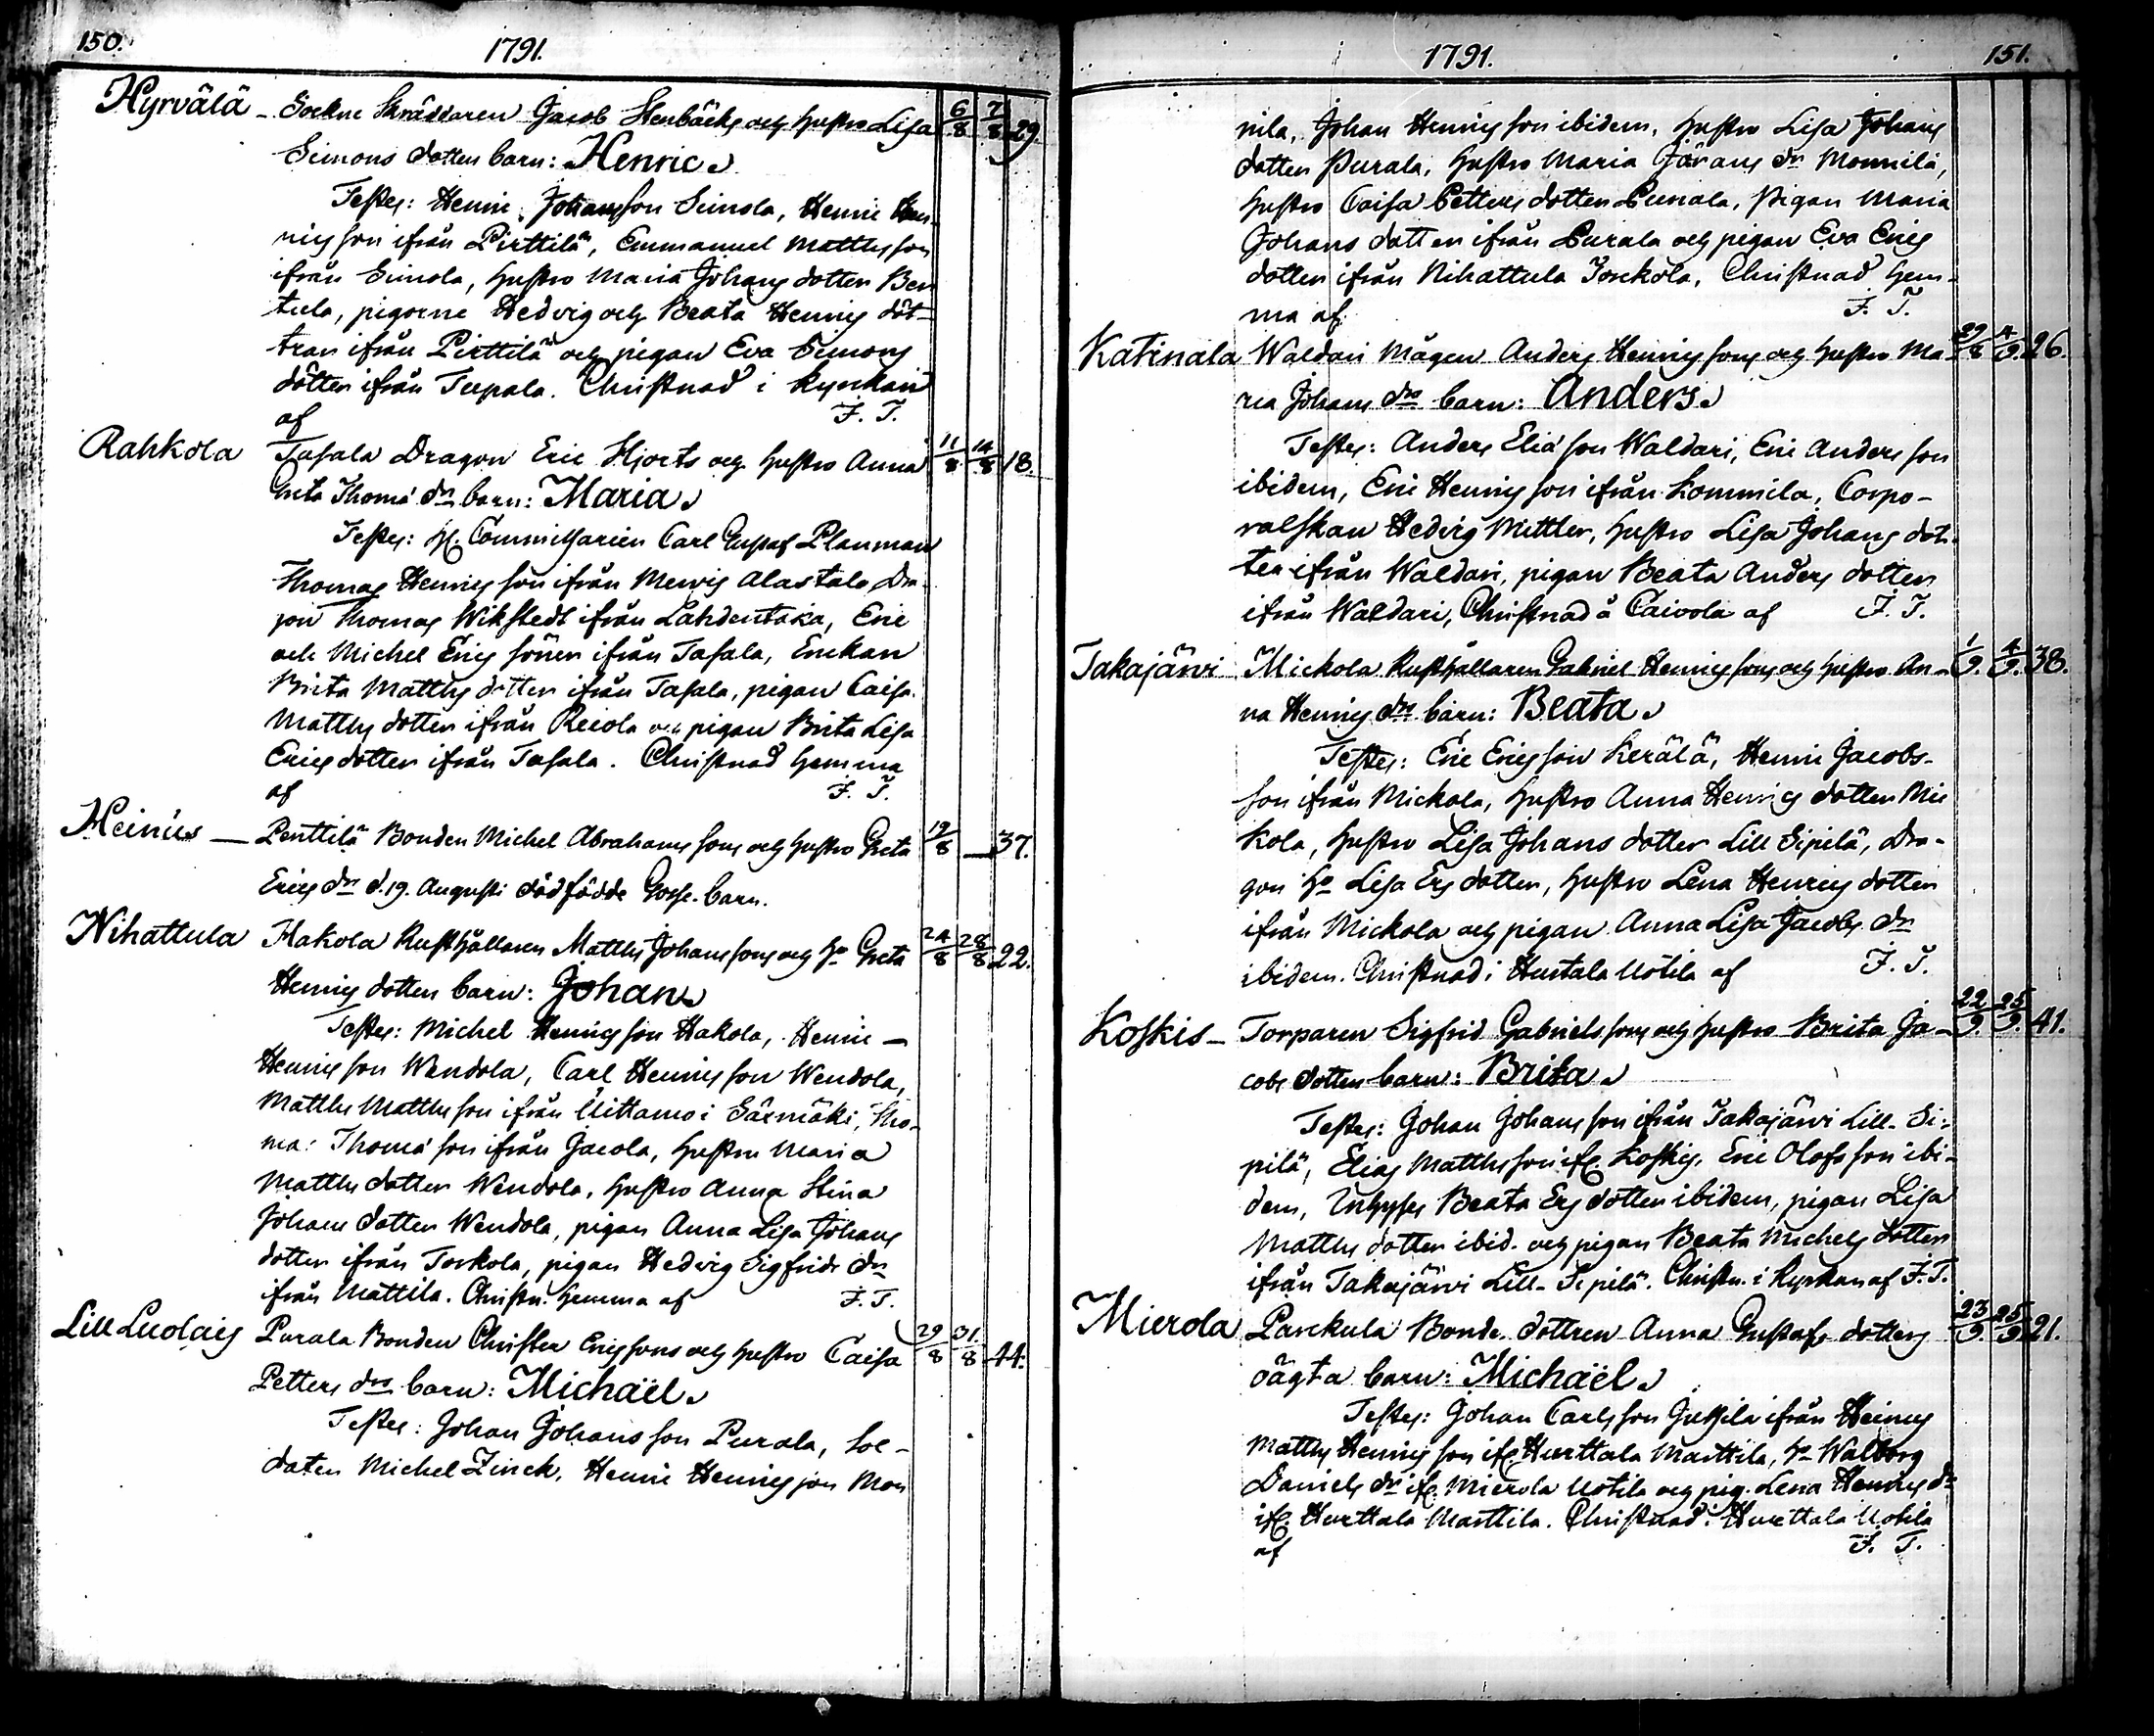 150.
1791.
Hyrvälä - Sockne Skräddaren Jacob Stenbäcks och hustro Lisa 6/8 7/8 29.
Simons dotters barn: Henric
Testes: Henric Johansson Simola, Henric Hen-
ricsson ifrån Pirttilä, Emmanuel Mattsson
ifrån Simola, hustro Maria Johans dotter Ben
tula, pigorne Hedvig och Beata Henrics döt-
trar ifrån Pirttilä och pigan Eva Simons
dotter ifrån Tupala. Christnad i kyrckan
af F. T.
Rahkola Tasala Dragon Eric Hjorts och hustro Anna 11/8 14/8 18.
Greta Thomæ drs barn: Maria
Testes: Hr Commissarien Carl Gustaf Planman
Thomas Henricsson ifrån Mervis Alastalo Dra-
gon Thomas Wikstedt ifrån Lahdentaka, Eric
och Michel Erics söner ifrån Tasala, Enckan
Brita Matths dotter ifrån Tasala, pigan Caisa
Matths dotter ifrån Reiola och pigan Brita Lisa
Erics dotter ifrån Tasala. Christnad hemma
af F. T.
Heinus - Penttilä Bonden Michel Abrahamssons och hustro Greta 19/8 - 37.
Erics drs d. 19. Augusti dödfödde Gosse-barn.
Nihattula Hakola Rusthållaren Matths Johanssons och ho Greta 24/8 28/8 22.
Henrics dotters barn: Johan
Testes: Michel Henricsson Hakola, Henric -
Henricsson Wendola, Carl Henricsson Wendola,
Matths Matthsson ifrån Uittamo i Säxmäki, Tho-
mas Thomæ son ifrån Jacola, hustru Maria
Matths dotter Wendola, hustro Anna Stina
Johans dotter Wendola, pigan Anna Lisa Johans
dotter ifrån Torkola, pigan Hedvig Sigfrids dr
ifrån Mattila. Christn. hemma af F. T.
Lill Luolais Purala Bonden Christer Ericssons och hustro Caisa 29/8 31/8 44.
Petters drs barn: Michaël
Testes: Johan Johansson Purala, Sol-
daten Michel Zinck, Henric Henricsson Mon
1791.
151.
nila, Johan Henricsson ibidem, hustro Lisa Johans
dotter Purala, hustro Maria Görans dr Monnila,
hustro Caisa Petters dotter Purala, Pigan Maria
Johans dotter ifrån Purala och pigan Eva Erics
dotter ifrån Nihattula Torckola, Christnad hem-
ma af F. T.
Katinala Waldari Mågen Anders Henricssons och hustro Ma- 29/8 4/9. 26.
ria Johans drs barn: Anders
Testes: Anders Eliæ son Waldari, Eric Andersson
ibidem, Eric Henricsson ifrån Kommila, Corpo-
ralskan Hedvig Mittler, hustro Lisa Johans dot-
ter ifrån Waldari, pigan Beata Anders dotter
ifrån Waldari, Christnad å Caivola af F. T.
Takajärvi Mickola Rusthållaren Gabriel Henricssons och hustro An- 1/9. 4/9. 38.
na Henrics drs barn: Beata
Testes: Eric Ericsson Kerälä, Henric Jacobs-
son ifrån Mickola, hustro Anna Henrics dotter Mic
kola, hustro Lisa Johans dotter Lill Sipilä, Dra-
gon ho Lisa Ers dotter, hustro Lena Henrics dotter
ifrån Mickola och pigan Anna Lisa Jacobs dr
ibidem. Christnad i Hurtala Uotila af F. T.
Koskis - Torparen Sigfrid Gabrielssons och hustro Brita Ja- 22/9. 25/9. 41.
cobs dotters barn: Brita
Testes: Johan Johansson ifrån Takajärvi Lill-Si-
pilä, Elias Matthsson ifr. Koskis. Eric Olofsson ibi-
dem, Inhyses Beata Ers dotter ibidem, pigan Lisa
Matths dotter ibid. och pigan Beata Michels dotter
ifrån Takajärvi Lill-Sipilä. Christn. i Kyrkan af F. T.
Mierola Parckula Bonde dottren Anna Gustafs dotters 23/9. 25/9 21.
oägta barn: Michaël
Testes: Johan Carlsson Jussila ifrån Heinus
Matths Henricsson ifr. Hurttala Marttila, ho Walborg
Daniels dr ifr. Mierola Uotila och pig. Lena Henrics dr
ifr. Hurttala Marttila. Christnad i Hurttala Uotila
af F. T.